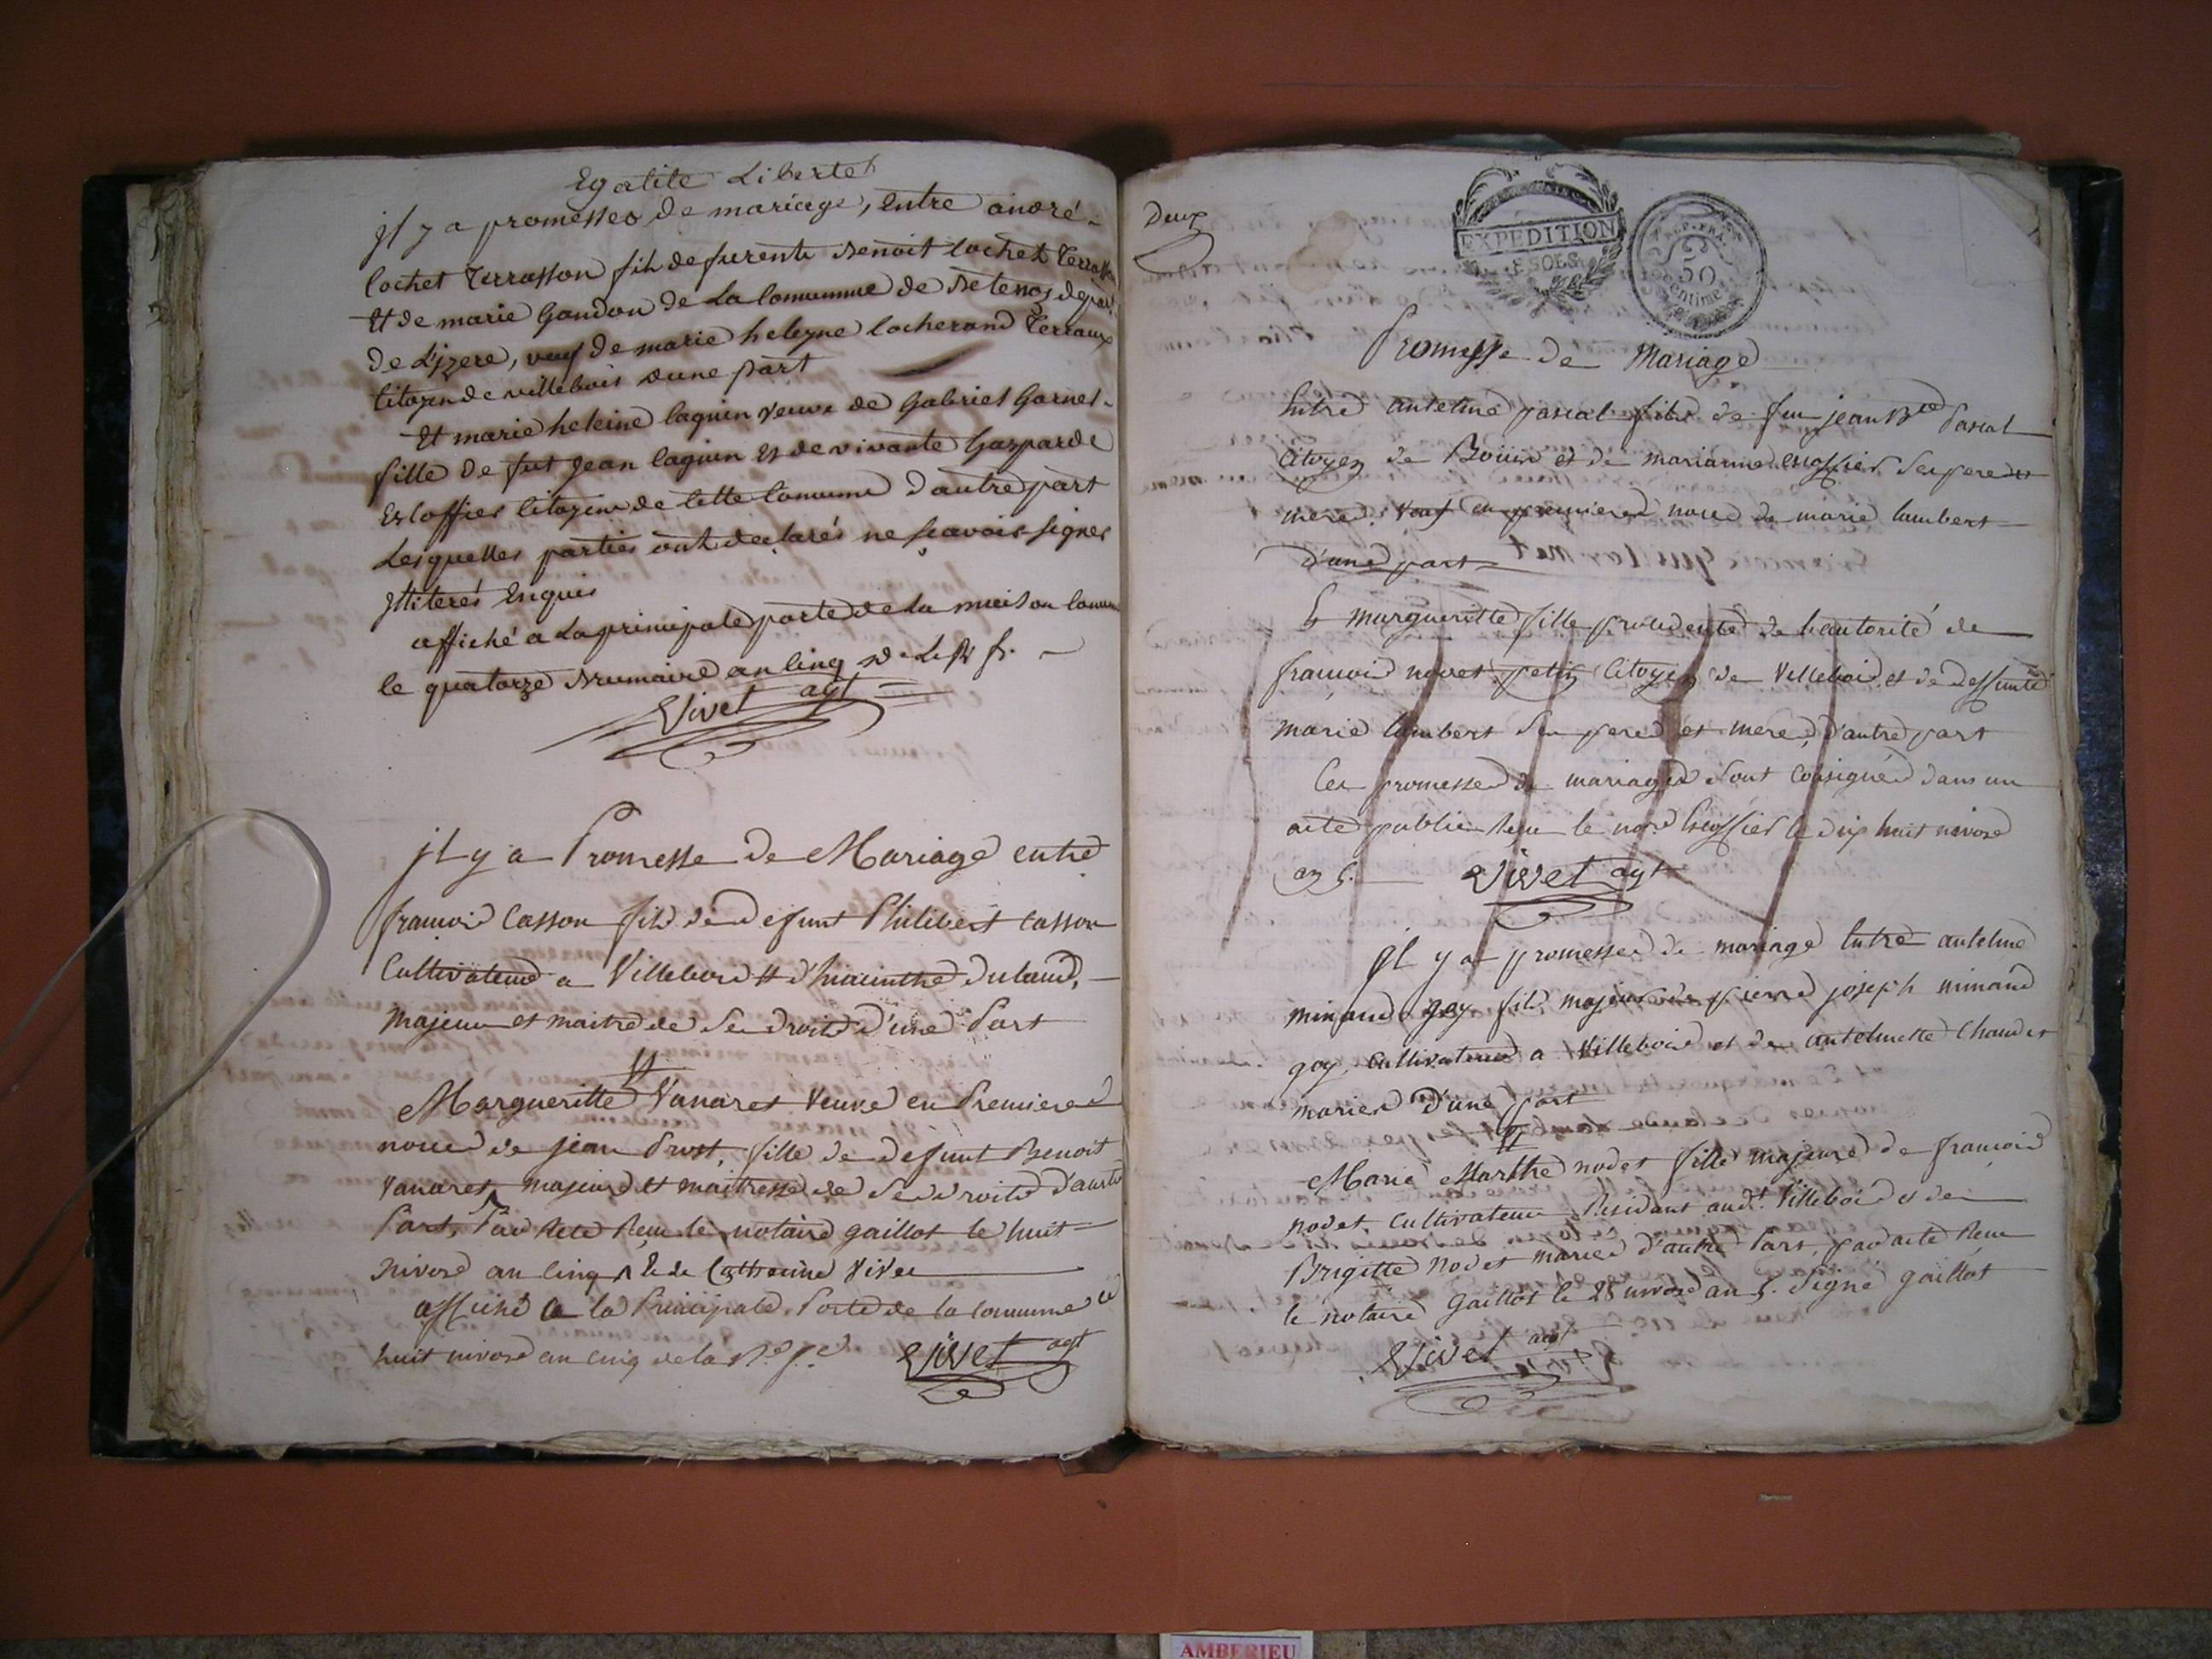 Egalite Liberte
jl y a promesses de mariage, entre andré
Cochet Terrasson fils de furent Benoit Cochet Terrasson
Et de marie Gandon de La Commune de depart
De L'jzere, veuf de marie heleyne Cocherand Terraux
Citoyen de villebois dune part
Et marie heleine laguin veuve de Gabriel Garnet
fille de fut Jean laguin Et de vivante Gasparde
Escoffier Citoyene de Cette Comune d'autre part
Lesquelles parties ont declarés ne scavoir signer
Jlliterés Enquis
affiché a La principale porte de La maison Comune
le quatorze Brumaire an Cinq de La R f.
Vivet agt
jl y a Promesse de Mariage entre
francois Casson fils de defunt Philibert Casson
Cultivateur a Villebois Et d'hiacinthe
majeur et maitre de Ses droits d'une Part
Et
Margueritte Vanaret Veuve en Premiere
noue de jean Prost, fille de defunt Benoit
Vanaret, majeure et maitresse de Ses droits d'autre
Part, Par Acte Reçu le notaire gaillot le huit
Nivose an Cinq Et de Catherine Vivet
affiché a la Principale Porte de la Commune Le
huit nivose an cinq de la R.e f.e Vivet agt
Deux
EXPEDITION
REP. FRA.
50
Centime
Promesse de Mariage
Entre antelme pascal fils de feu jean B.te Pascal
Citoyen de Bouin et de marianne escoffier Ses pere et
mere. Veuf en premiere noue de marie lambert
d'une part
Et margueritte fille procedente de l'autorité de
francois noset petit Citoyen de Villebois et de deffunte
marie lambert Ses pere et mere, d'autre part
Ces promesses de mariage Sont Consignée dans un
acte public Reçu le no.re Escoffier le dix huit nivose
an 5. Vivet agt
Jl y a promesses de mariage Entre antelme
minand goy fils majeur de pierre joseph minand
goy, Cultivateur a Villebois et de antelmette Chaudet
mariés D'une part
Et
Marie Marthe nodet fille majeure de francois
nodet Cultivateur Residant aud.t Villebois et de
Brigitte Nodet mariés d'autre Part, par acte Reçu
le notaire Gaillot le 28 nivose an 5. Signé gaillot
Vivet agt
AMBERIEU